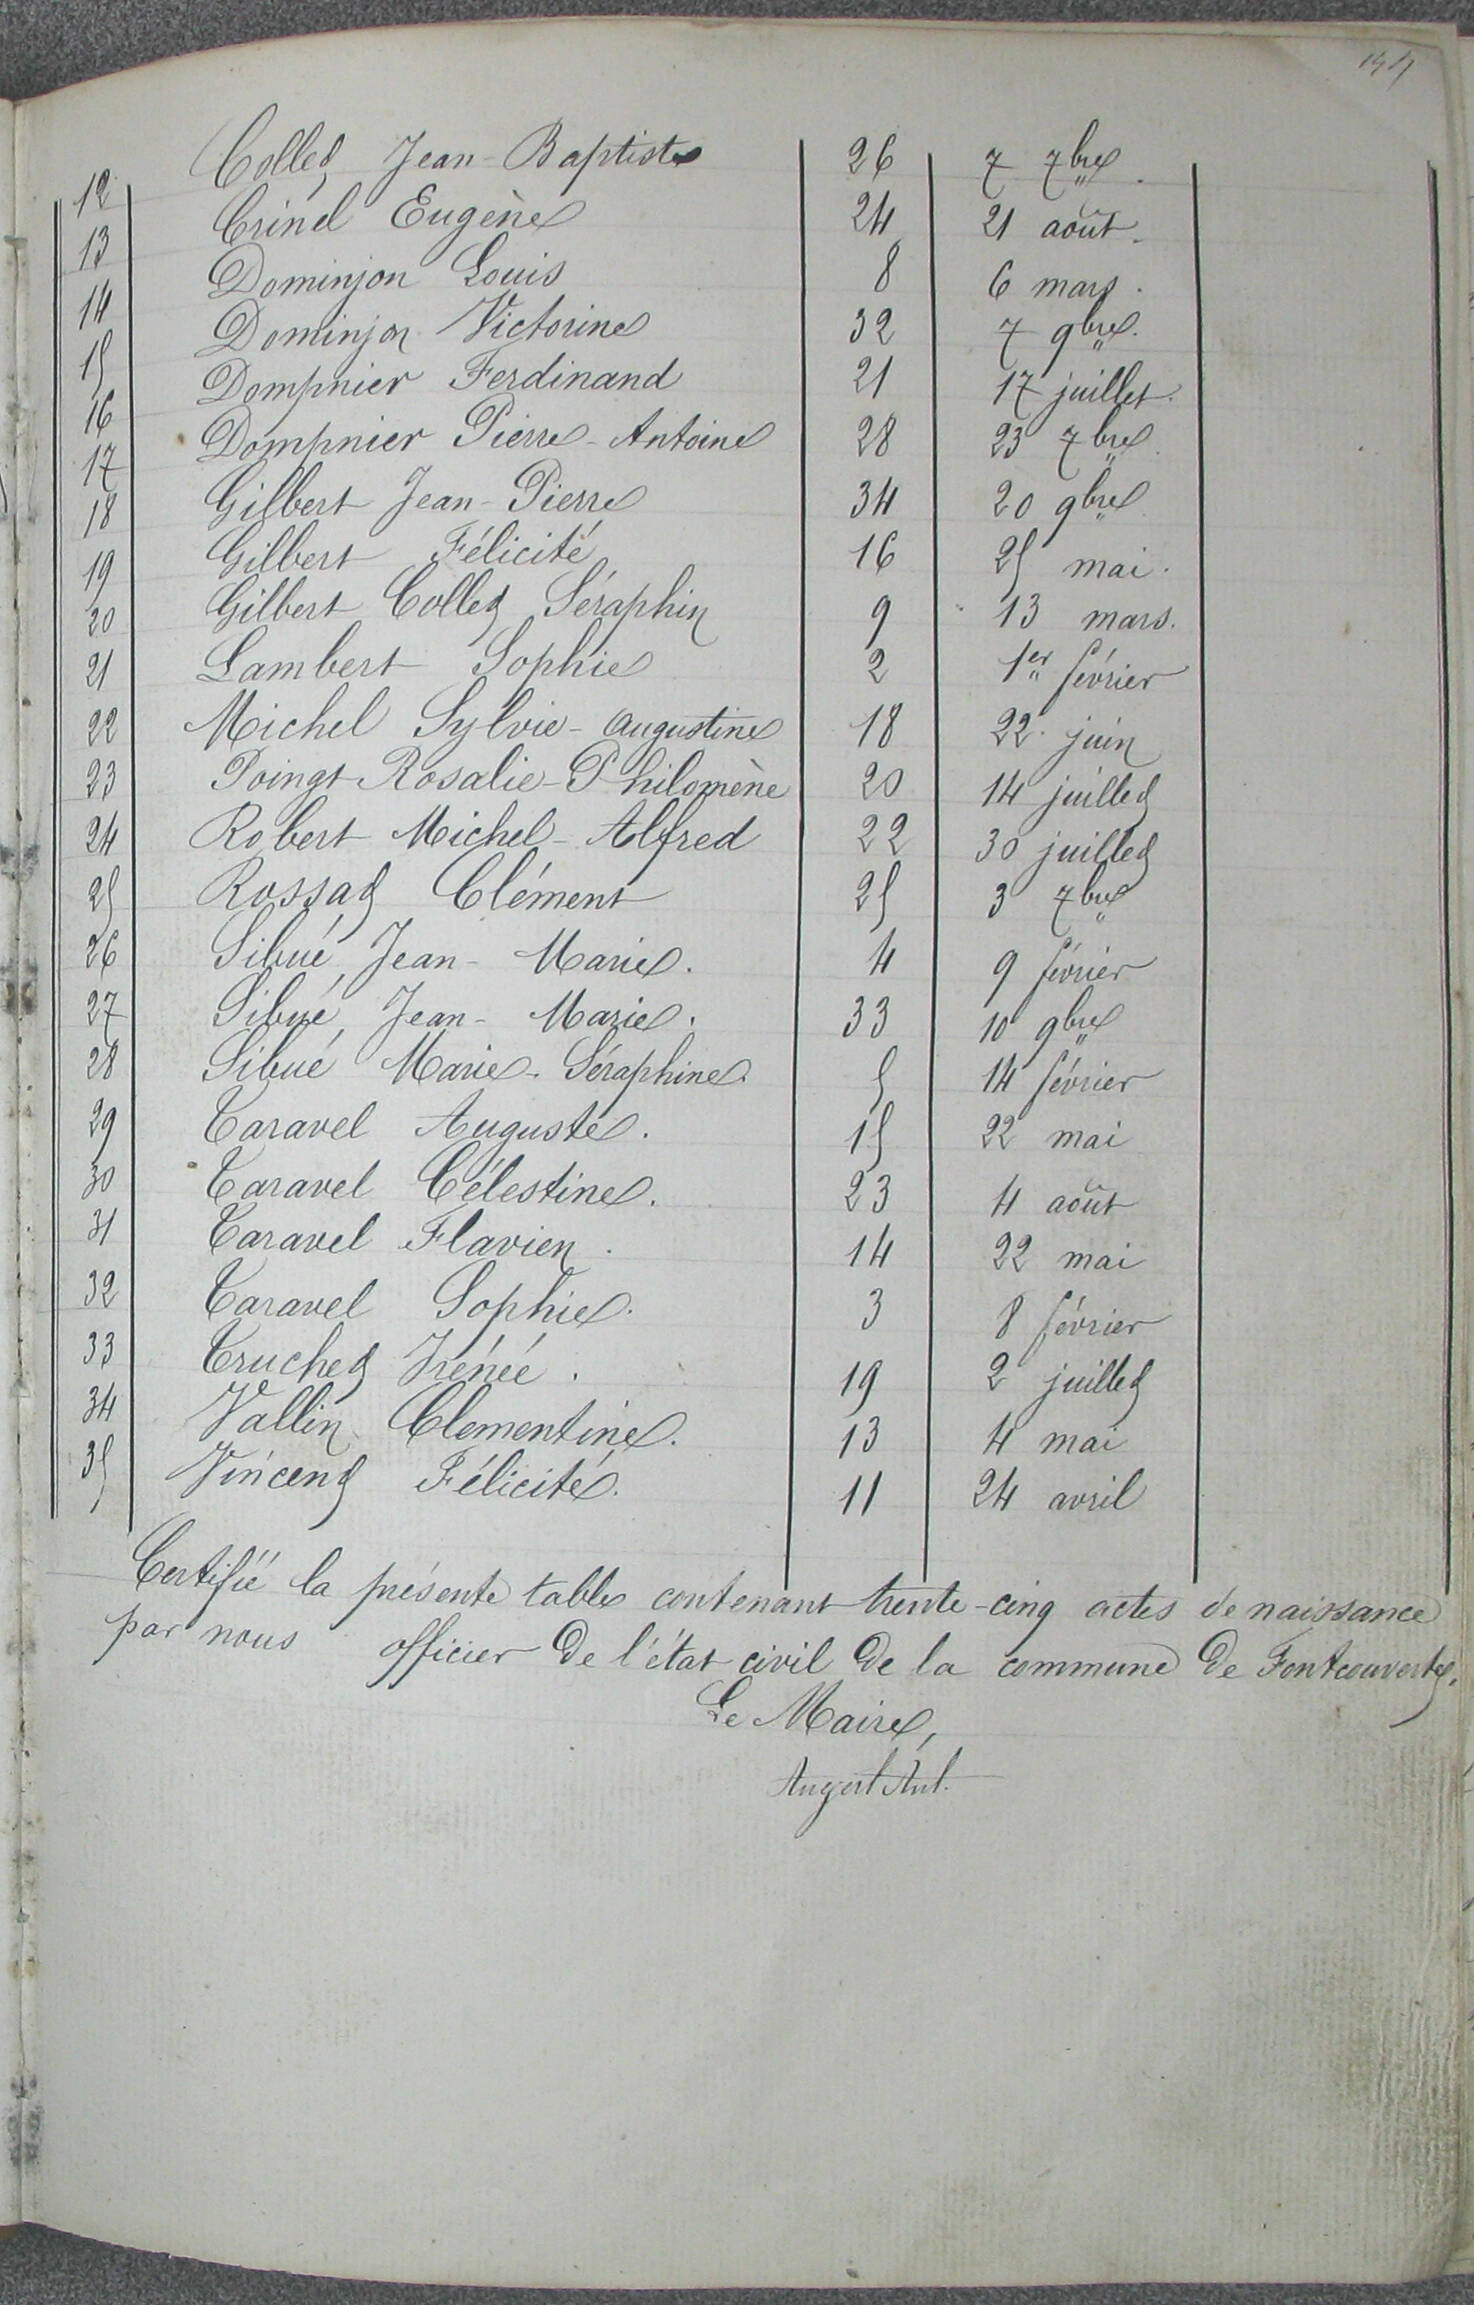 12 Collet Jean-Baptiste 26 7 7bre.
13 Crinel Eugène 24 21 août.
14 Dominjon Louis 8 6 mars.
15 Dominjon Victorine 32 7 9bre.
16 Dompnier Ferdinand 21 17 juillet.
17 Dompnier Pierre-Antoine 28 23 7bre.
18 Gilbert Jean-Pierre 34 20 9bre
19 Gilbert Félicité 16 25 mai.
20 Gilbert Collet Séraphin 9 13 mars.
21 Lambert Sophie 2 1er février
22 Michel Sylvie-Augustine 18 22 juin
23 Poingt Rosalie-Philomène 20 14 juillet
24 Robert Michel-Alfred 22 30 juillet
25 Rossat Clément 25 3 7bre
26 Sibué Jean-Marie. 4 9 février
27 Sibué Jean-Marie. 33 10 9bre
28 Sibué Marie-Séraphine. 5 14 février
29 Taravel Auguste. 15 22 mai
30 Taravel Célestine. 23 4 août
31 Taravel Flavien. 14 22 mai
32 Taravel Sophie. 3 8 février
33 Truchet Irénée. 19 2 juillet
34 Vallin Clementine. 13 4 mai
35 Vincent Félicité. 11 24 avril
Certifié la présente table contenant trente-cinq actes de naissance
par nous officier de l'état civil de la commune de Fontcouverte.
Le Maire,
Augert Ant.